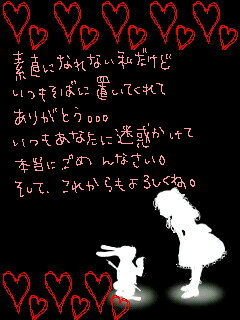 素直になれない私だけど
いつもそばに置いてくれて
ありがとう。。。
いつもあなたに迷惑かけて
本当にごめんなさい。
そして、これからもよろしくね。